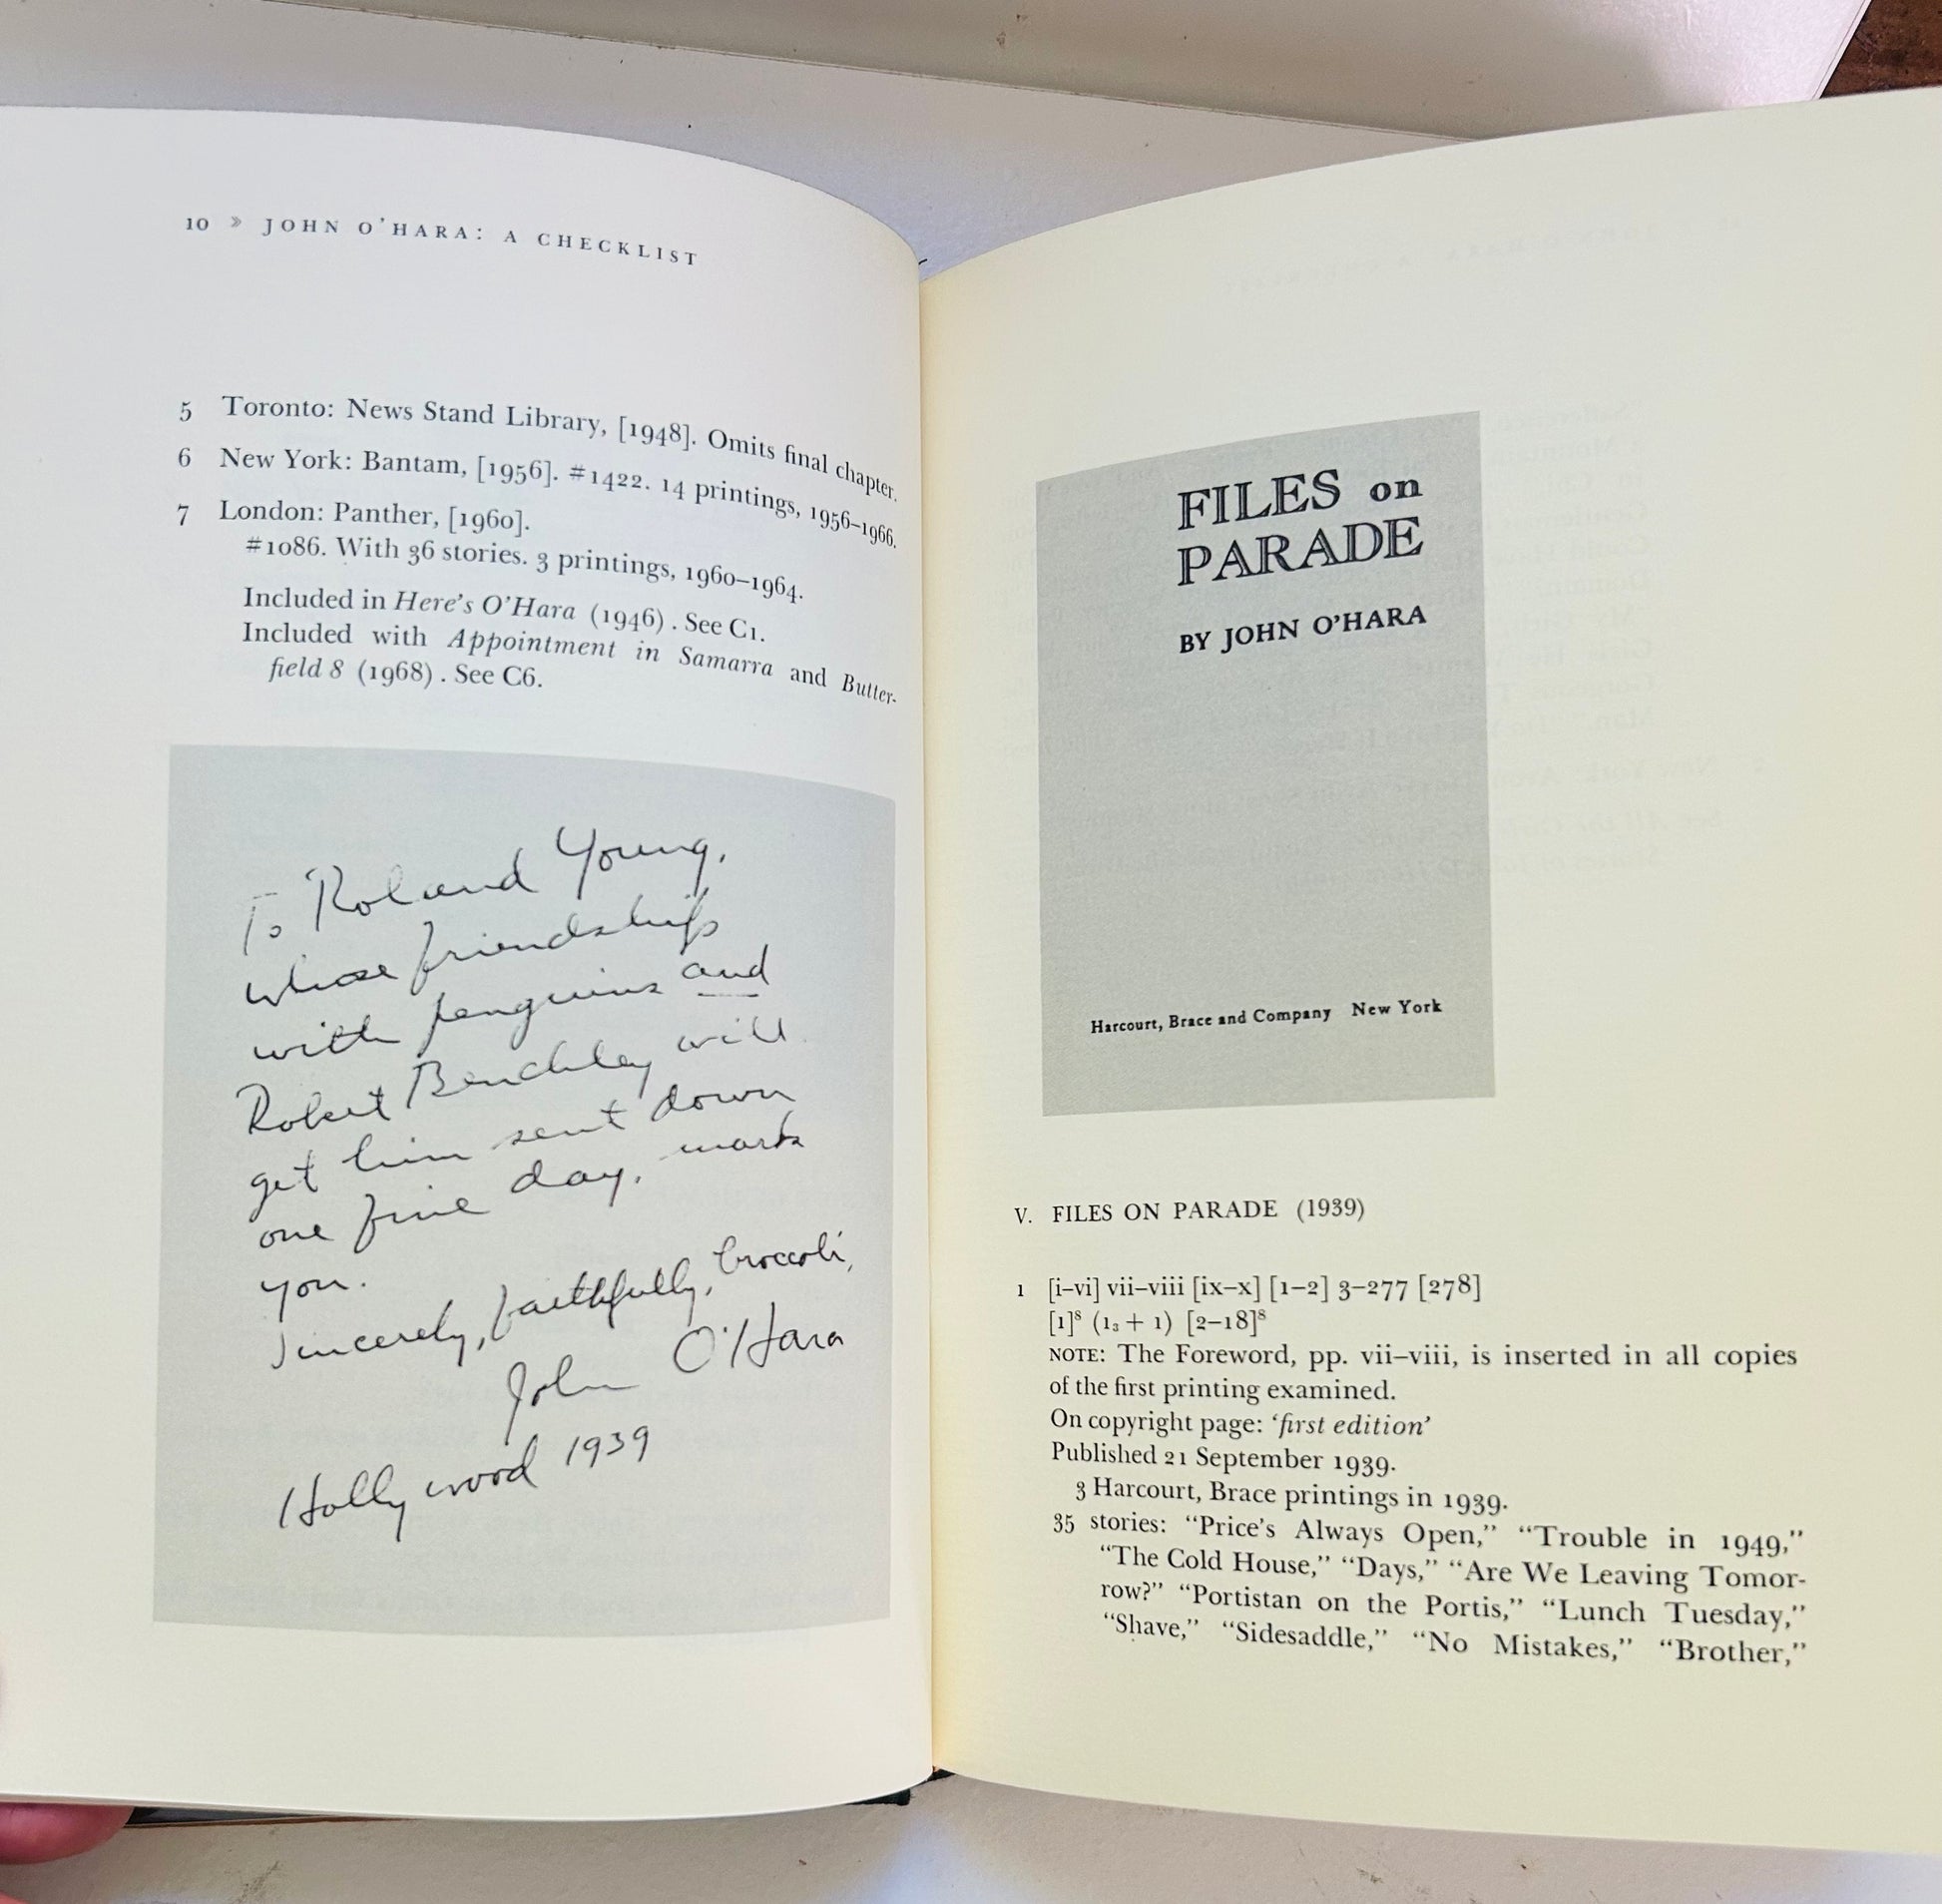 10 » JOHN O'HARA: A CHECKLIST
5 Toronto: News Stand Library, [1948]. Omits final chapter.
6 New York: Bantam, [1956]. #1422. 14 printings, 1956–1966.
7 London: Panther, [1960].
#1086. With 36 stories. 3 printings, 1960–1964.
Included in Here's O'Hara (1946). See C1.
Included with Appointment in Samarra and Butter-
field 8 (1968). See C6.
To Roland Young,
whose friendship
with penguins and
Robert Benchley will
get him sent down
one fine day, mark
you.
Sincerely, faithfully, broccoli,
John O'Hara
Hollywood 1939
FILES on
PARADE
BY JOHN O'HARA
Harcourt, Brace and Company New York
V. FILES ON PARADE (1939)
1 [i–vi] vii–viii [ix–x] [1–2] 3–277 [278]
[1]⁸ (1₃ + 1) [2–18]⁸
NOTE: The Foreword, pp. vii–viii, is inserted in all copies
of the first printing examined.
On copyright page: 'first edition'
Published 21 September 1939.
3 Harcourt, Brace printings in 1939.
35 stories: "Price's Always Open," "Trouble in 1949,"
"The Cold House," "Days," "Are We Leaving Tomor-
row?" "Portistan on the Portis," "Lunch Tuesday,"
"Shave," "Sidesaddle," "No Mistakes," "Brother,"